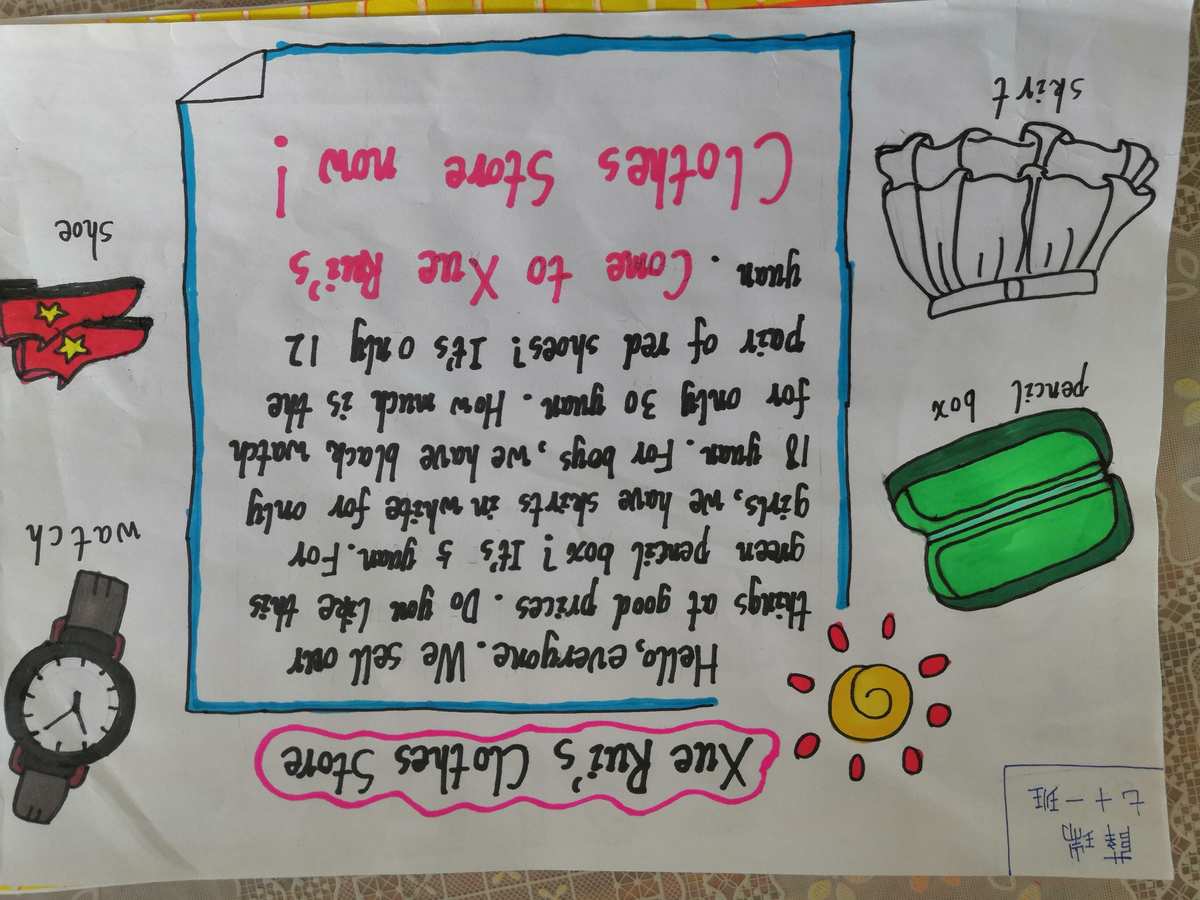 七十一班
薛瑞
Xue Rui's Clothes Store
Hello, everyone. We sell our
things at good prices. Do you like this
green pencil box? It's 5 yuan. For
girls, we have skirts in white for only
18 yuan. For boys, we have black watch
for only 30 yuan. How much is the
pair of red shoes? It's only 12
yuan. Come to Xue Rui's
Clothes Store now!
watch
shoe
pencil box
skirt